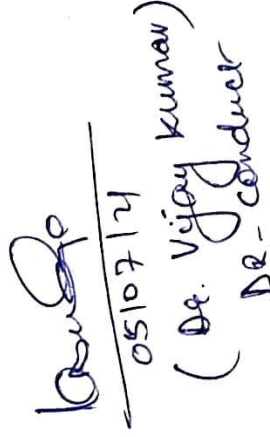 05/07/21
( Dr. Vijay Kumar )
DR - Conduct